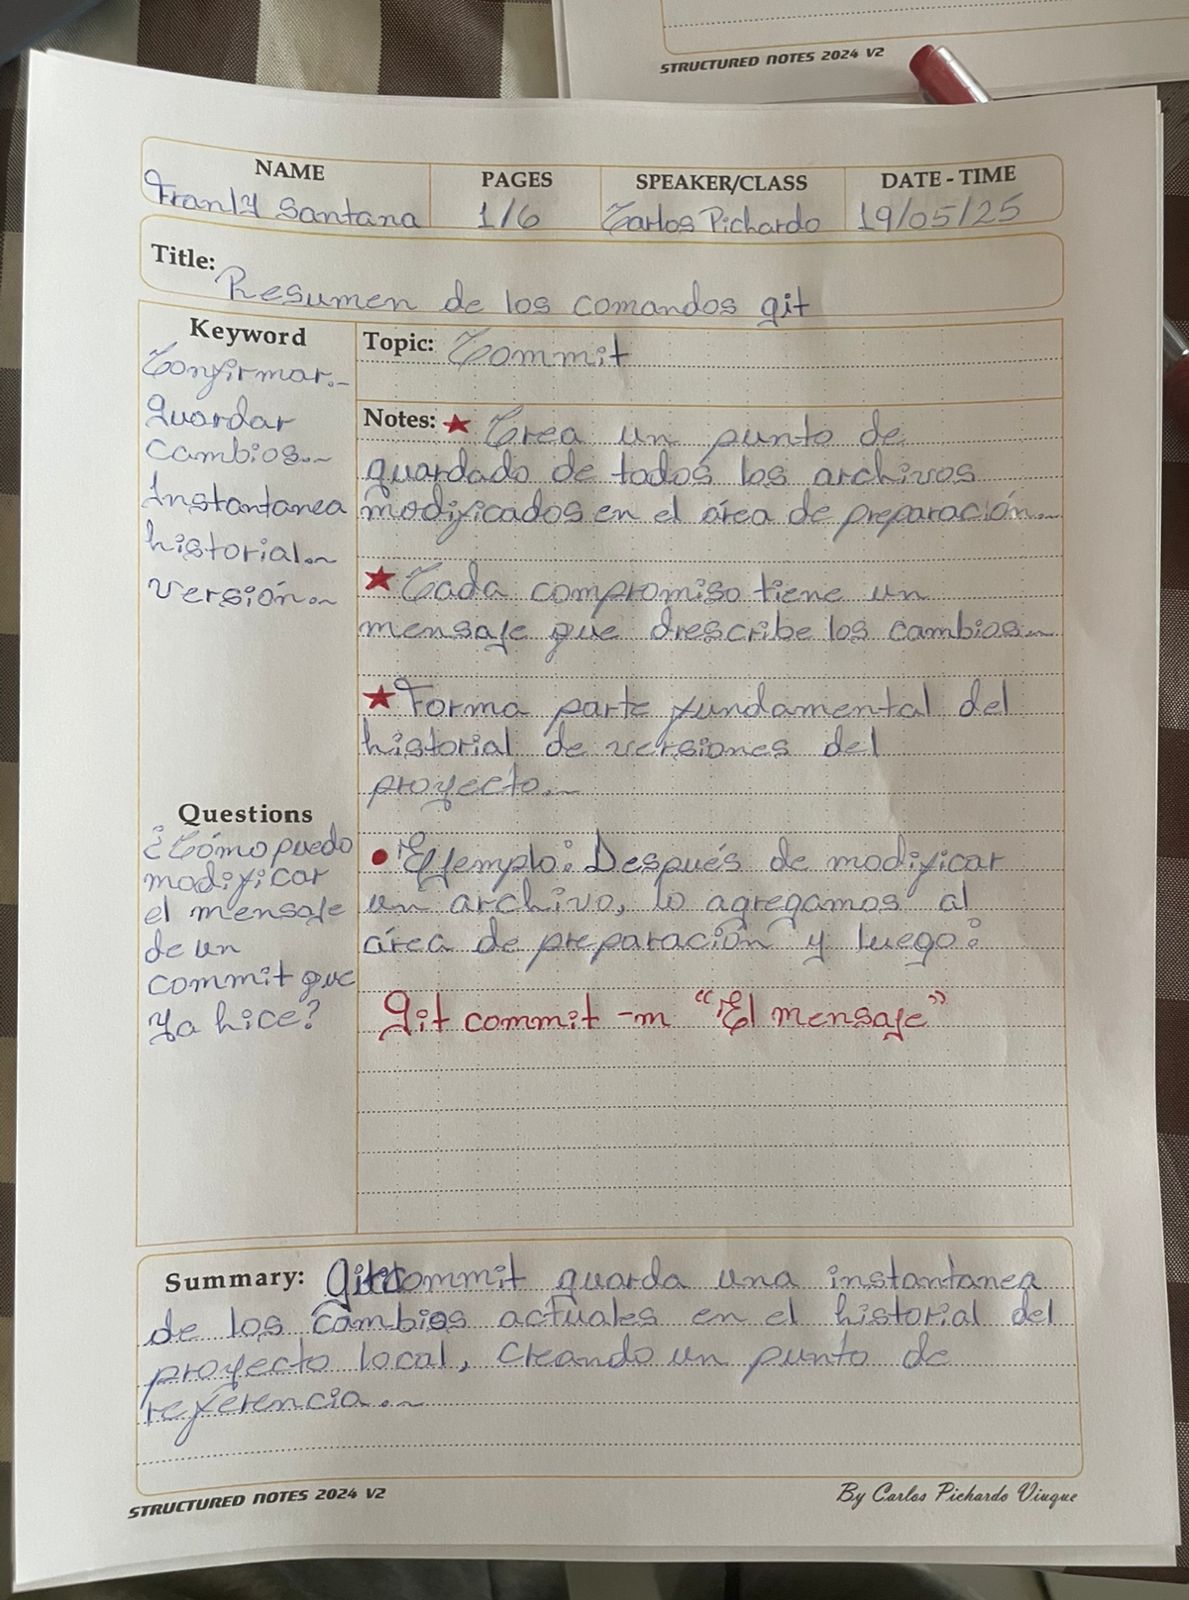 STRUCTURED NOTES 2024 V2
NAME PAGES SPEAKER/CLASS DATE - TIME
Franly Santana 1/6 Carlos Pichardo 19/05/25
Title:
Resumen de los comandos git
Keyword
Confirmar.
Guardar
cambios.
Instantanea
historial.
versión.
Topic: Commit
Notes: ★ Crea un punto de
guardado de todos los archivos
modificados en el área de preparación.
★ Cada compromiso tiene un
mensaje que drescribe los cambios.
★ Forma parte fundamental del
historial de versiones del
proyecto.
• Ejemplo: Después de modificar
un archivo, lo agregamos al
área de preparación y luego:
Git commit -m "El mensaje"
Questions
¿Cómo puedo
modificar
el mensaje
de un
commit que
ya hice?
Summary: Git commit guarda una instantanea
de los cambios actuales en el historial del
proyecto local, creando un punto de
referencia.
STRUCTURED NOTES 2024 V2
By Carlos Pichardo Viuque